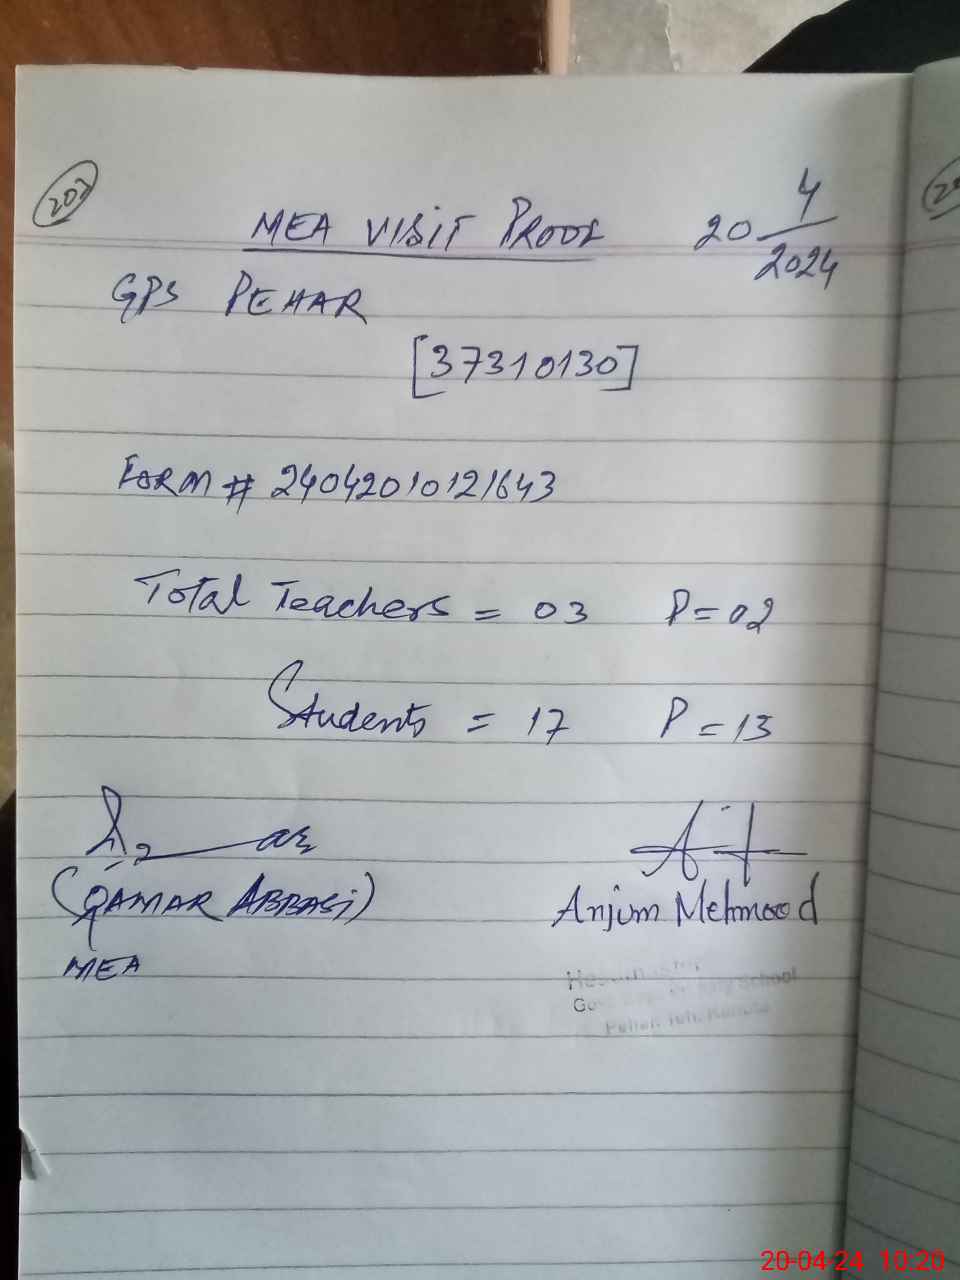 MEA VISIT PROOF 20 4/2024
GPS PEHAR
[37310130]
FORM # 24042010121643
Total Teachers = 03 P = 02
Students = 17 P = 13
(QAMAR ABBASI)
Anjum Mehmood
MEA
Headmaster
School
20-04-24 10:20